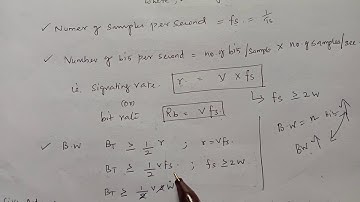 where,
✓ Numer of samples per second = fs = 1/Ts
✓ Number of bis per second = no. of bis/sample × no. of samples/sec
i.e. signaling rate r = v × fs
(or)
bit rate Rb = v fs
↳ fs ≥ 2W
✓ B.W BT ≥ 1/2 r ; r = vfs
BT ≥ 1/2 vfs ; fs ≥ 2W
BT ≥ 1/2 v 2W
B.W = n bis
BW ↑